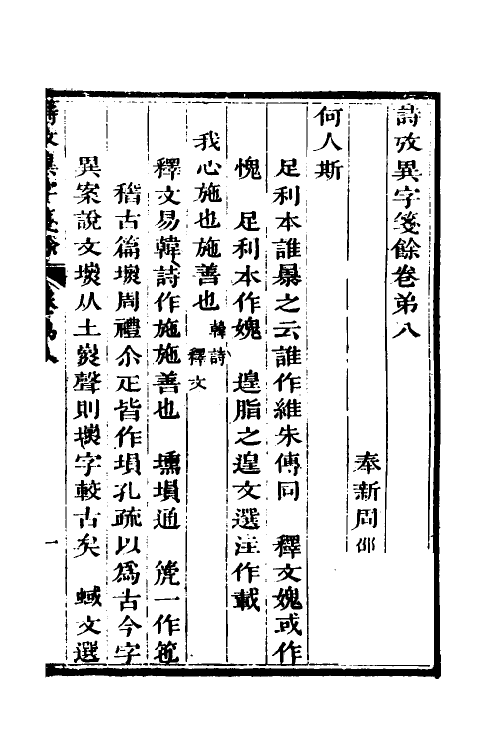 詩攷異字箋餘卷弟八
奉新周邵
何人斯
足利本誰暴之云誰作維朱傳同　釋文媿或作
愧　足利本作媿　遑脂之遑文選注作載
我心施也施善也韓詩釋文
釋文易韓詩作施施善也　壎塤通　篪一作竾
稽古篇壎周禮尒疋皆作塤孔疏以爲古今字
異案說文壎从土熏聲則壎字較古矣　蜮文選
詩攷異字箋餘　卷弟八
一